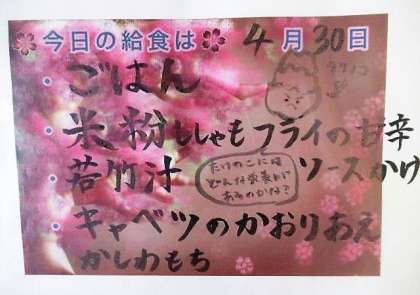 今日の給食は 4月30日
・ごはん
・米粉ししゃもフライの甘辛
ソースかけ
・若竹汁
たけのこには
どんな栄養が
あるのかな?
・キャベツのかおりあえ
かしわもち